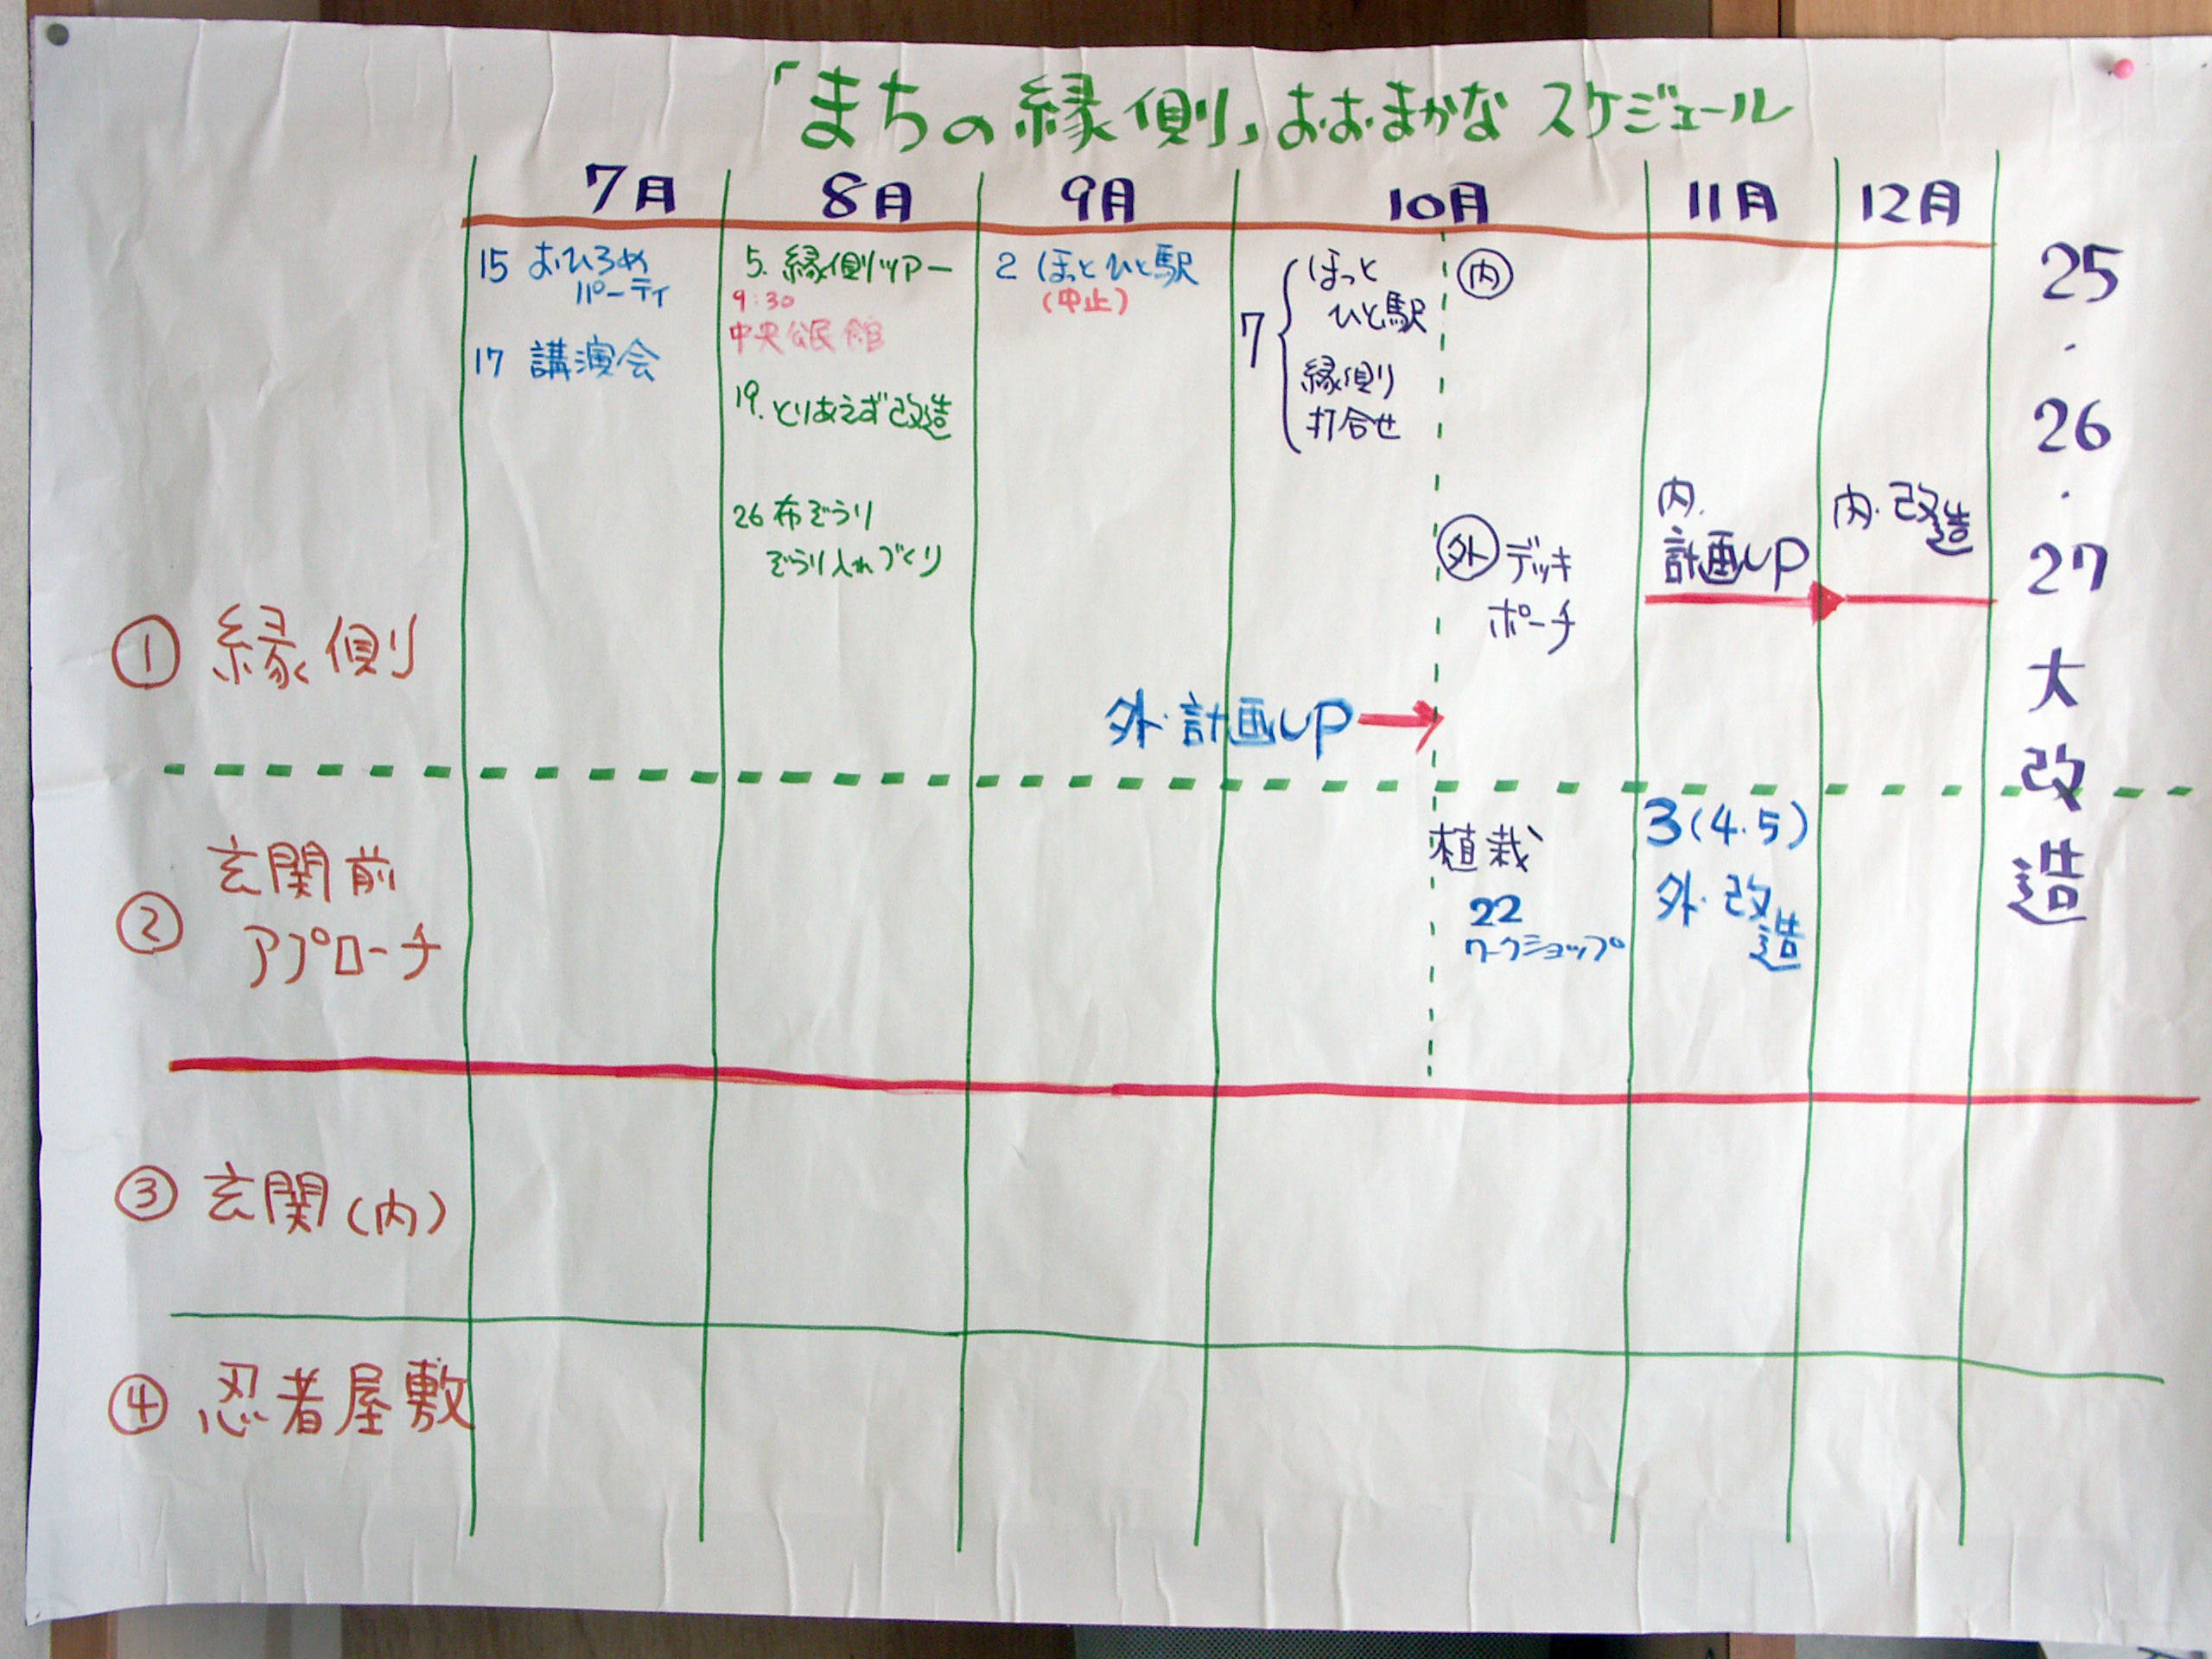 「まちの縁側」おおまかなスケジュール
7月
8月
9月
10月
11月
12月
15 おひろめ
パーティ
17 講演会
5. 縁側ツアー
9:30
中央公民館
19. とりあえず改造
26 布ぞうり
ぞうり入れづくり
2 ほっとひと駅
(中止)
7
ほっと
ひと駅
縁側
打合せ
内
外 デッキ
ポーチ
内.
計画UP
内・改造
① 縁側
外・計画UP
② 玄関前
アプローチ
植栽
22
ワークショップ
3(4.5)
外・改造
③ 玄関(内)
④ 忍者屋敷
25・26・27大改造